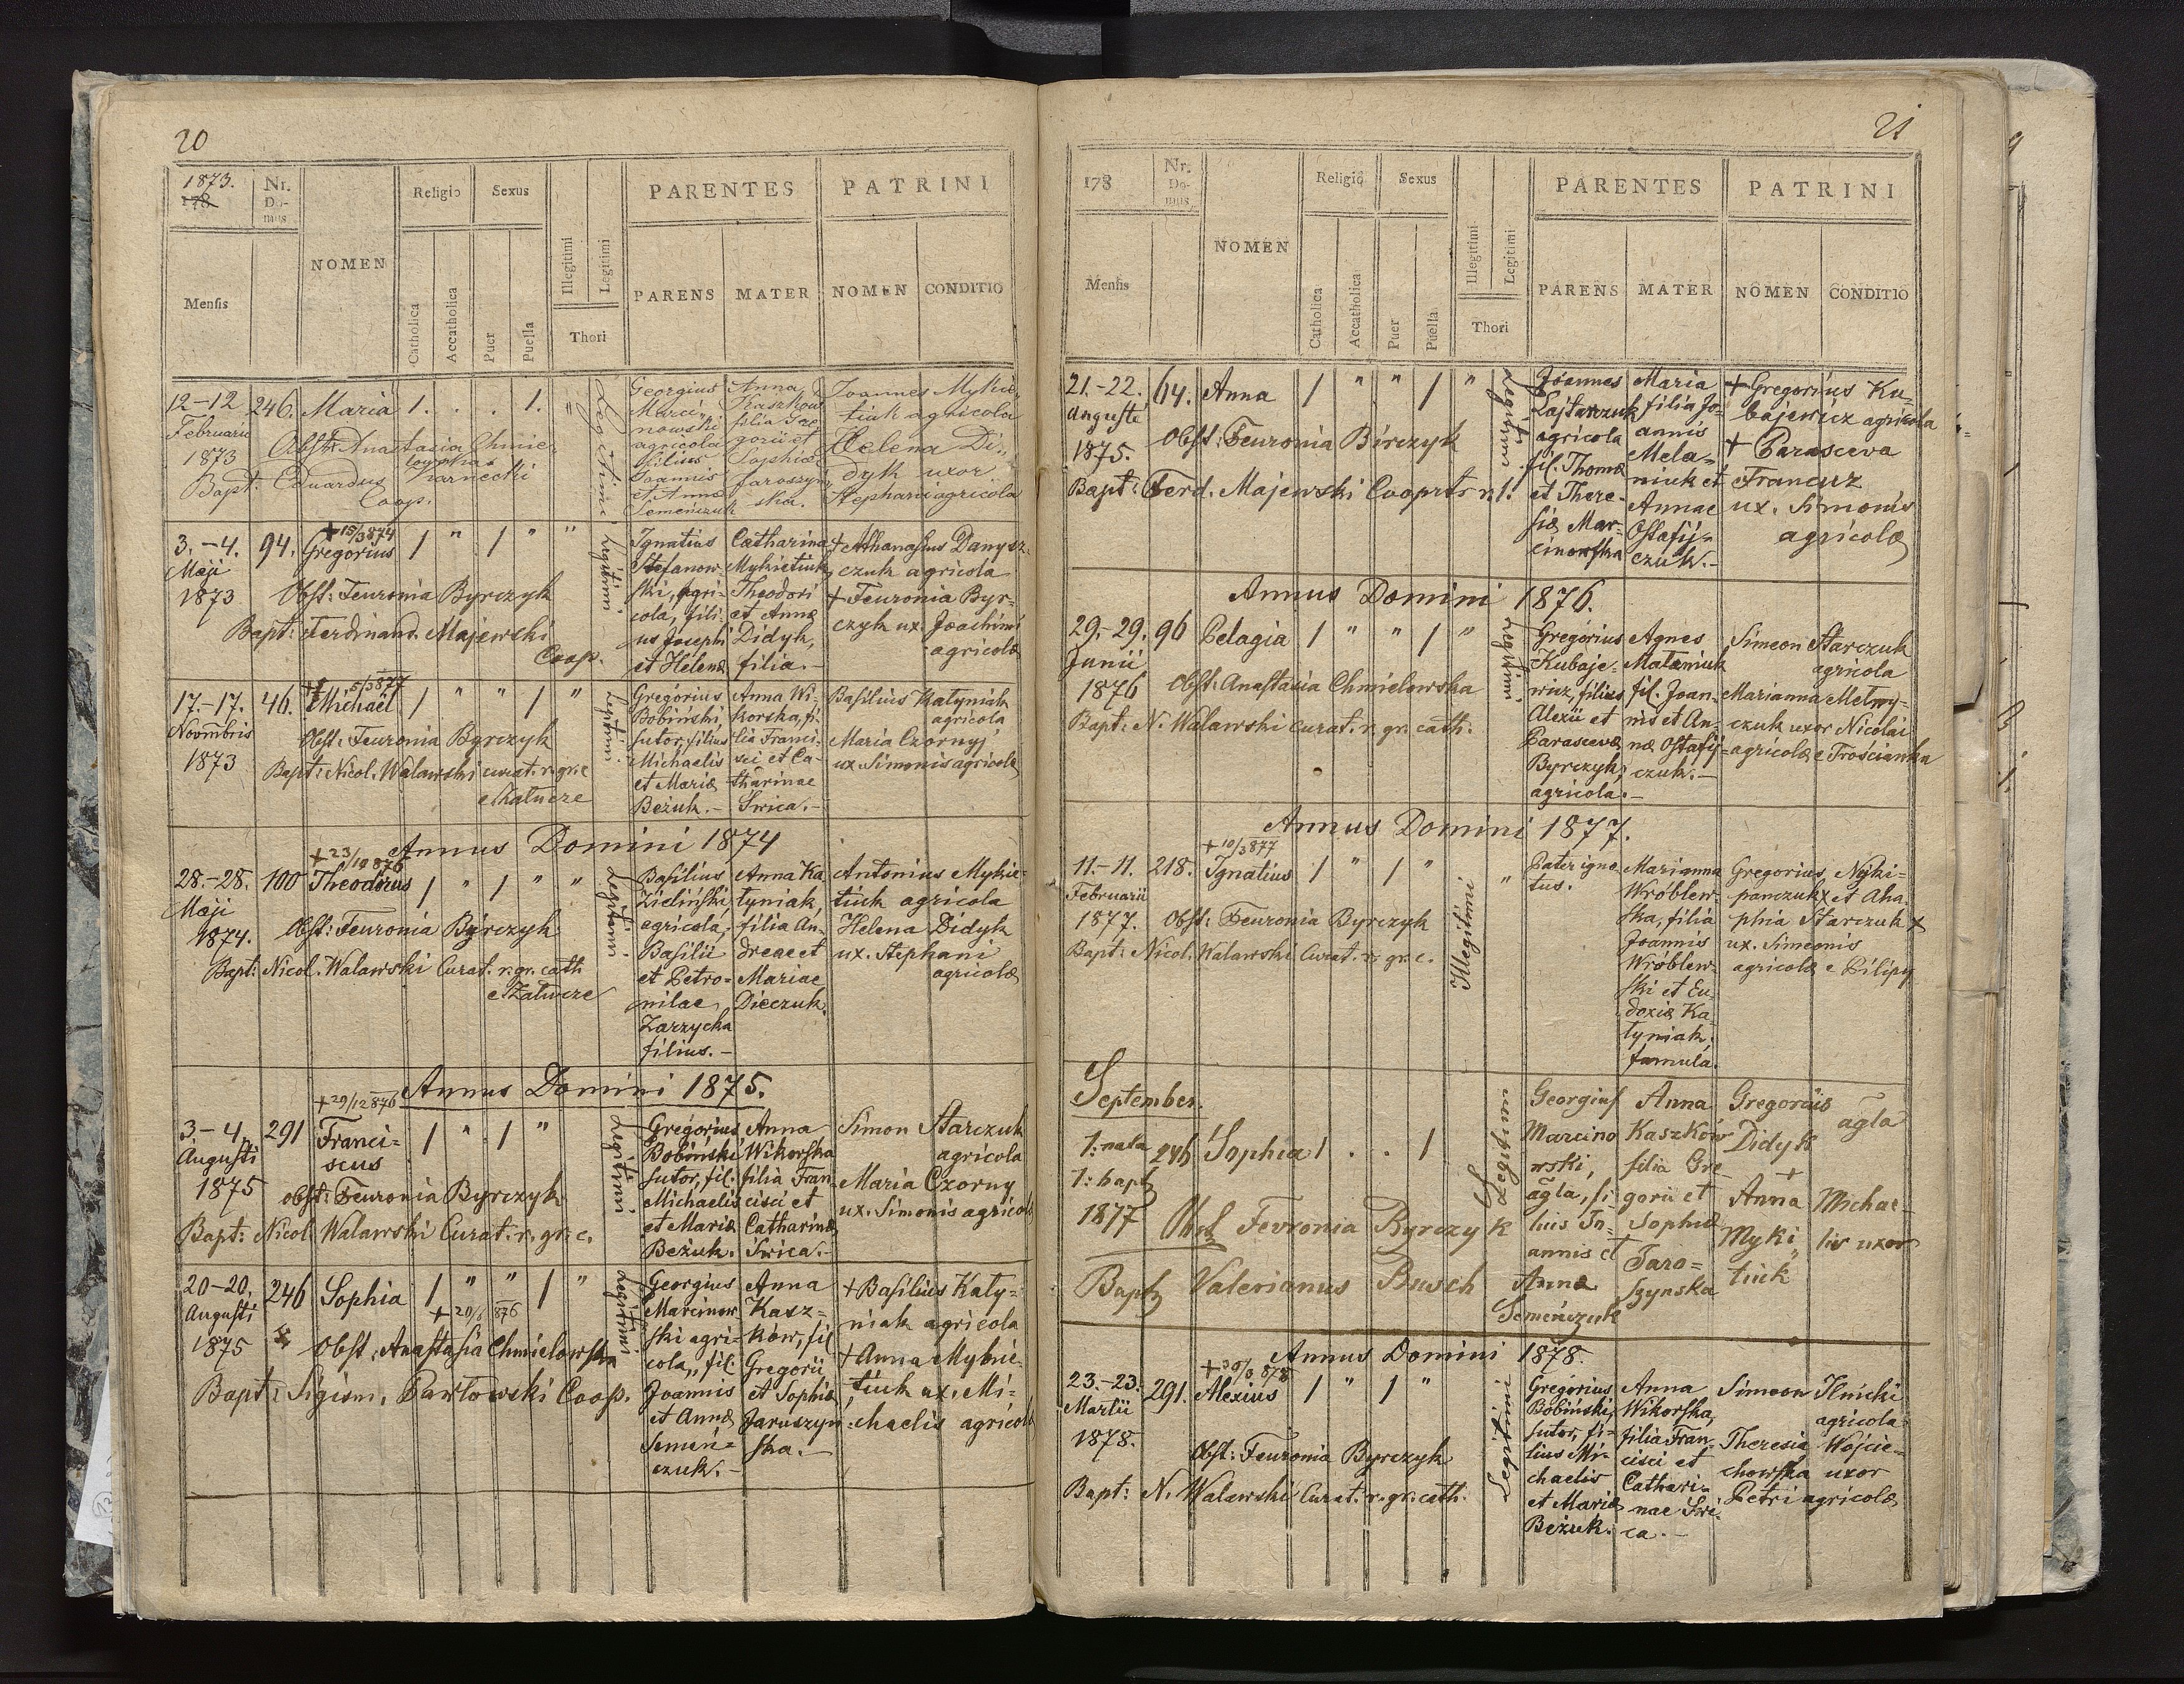 20
1873.
178
Nr. Domus
NOMEN
Religio
Sexus
PARENTES
PATRINI
Mensis
Catholica
Accatholica
Puer
Puella
Illegitimi
Legitimi
Thori
PARENS
MATER
NOMEN
CONDITIO
12-12 246. Maria 1. . . 1. "
Februarii
1873
Obst: Anastasia Chmielowska
Bapt: Eduardus Harnecki
Coop.
Legitimi
Georgius
Marci-
nowski
agricola
filius
Joannis
et Annæ
Semeńczuk
Anna
Kaszkow
filia Gre
gorii et
Sophiæ
Jaroszyn
ska.
Joannes Mykie
tiuk agricola
Helena Di-
dyk uxor
Stephani agricola
3.-4. 94. Gregorius 1 " 1 " "
+15/3 874
Maji
1873
Obst: Feuronia Byrczyk
Bapt: Ferdinand. Majewski
Coop.
Legitimi
Ignatius
Stefanow
ski, agri-
cola, fili-
us Josephi
et Helenæ
Catharina
Mykietiuk
Theodori
et Annæ
Didyk,
filia.-
+Athanasius Danysz-
czuk agricola
+Feuronia Byr-
czyk ux. Joachimi
agricolæ
17.-17. 46. Michael 1 " " 1 "
5/3 877
Novmbris
1873
Obst: Feuronia Byrczyk
Bapt: Nicol. Walawski curat. r. gr. c
e Załucze
Legitimi.
Gregorius
Bobiński,
sutor, filius
Michaelis
et Mariæ
Beżuk.-
Anna Wi-
korska, fi-
lia Franci-
sci et Ca-
tharinae
Świca.-
Basilius Katyniak
agricola
Maria Czornyj
ux. Simonis agricolæ
Annus Domini 1874
+23/10 876
28.-28. 100 Theodorus 1 " 1 " "
Maji
1874.
Obst: Feuronia Byrczyk
Bapt: Nicol. Walawski Curat. r. gr. cath
e Załucze
Legitimi.
Basilius
Zieliński
agricola,
Basilii
et Petro-
nilae
Zarzycka
filius.-
Anna Ka
tyniak,
filia An-
dreae et
Mariae
Dieczuk.
Antonius Mykie-
tiuk agricola
Helena Didyk
ux. Stephani
agricolæ
Annus Domini 1875.
+29/12 876
3-4. 291 Franci-
scus 1 " 1 "
Augusti
1875
Obst: Feuronia Byrczyk
Bapt: Nicol. Walawski Curat. r. gr. c.
Legitimi
Gregorius
Bobiński
sutor, fil.
Michaelis
et Mariæ
Beżuk.
Anna
Wikorska
filia Fran
cisci et
Catharinæ
Świca.-
Simon Starczuk
agricola
Maria Czorny
ux. Simonis agricolæ
20-20. 246 Sophia 1 " " 1 "
+20/6 876
Augusti
1875
Obst: Anastasia Chmielowska
Bapt: Sigism. Pawłowski Coop.
Legitimi
Georgius
Marcinow
ski agri-
cola, fil.
Joannis
et Annæ
Semeń-
czuk.-
Anna
Kasz-
ków, fil
Gregorii
et Sophiæ
Jaroszyn
ska.-
+Basilius Katy-
niak agricola
+Anna Mykie-
tiuk ux. Mi-
chaelis agricolæ
21
178
Nr. Domus
NOMEN
Religio
Sexus
PARENTES
PATRINI
Mensis
Catholica
Accatholica
Puer
Puella
Illegitimi
Legitimi
Thori
PARENS
MATER
NOMEN
CONDITIO
21.-22. 64. Anna 1 " " 1 "
Augusti
1875.
Obst: Feuronia Birczyk
Bapt: Ferd. Majewski Cooprts r. l.
Legitimi
Joannes
Łajtarczuk
agricola
fil. Thomæ
et There-
siæ Mar-
cinowska
Maria
filia Jo-
annis
Mela-
niuk et
Annae
Ostafij-
czuk.-
+Gregorius Ku-
bajewicz agricola
+Parasceva
Francuz
ux. Simonis
agricolæ
Annus Domini 1876.
29.-29. 96 Pelagia 1 " " 1 "
Junii
1876
Obst: Anastasia Chmielowska
Bapt: N. Walawski curat. r. gr. cath.
Legitimi
Gregorius
Kubaje-
wicz, filius
Alexii et
Parascevæ
Byrczyk,
agricola.-
Agnes
Mataniuk
fil. Joan-
nis et An-
næ Ostafij-
czuk.-
Simeon Starczuk
agricola
Marianna Melny-
czuk uxor Nicolai
agricolæ e Trościanka
Annus Domini 1877.
+10/3 877
11.-11. 218. Ignatius 1 " 1 " "
Februarii
1877.
Obst: Feuronia Byrczyk
Bapt: Nicol. Walawski Curat. r. gr. c.
Illegitimi
Pater igno
tus.
Marianna
Wróblew-
ska, filia
Joannis
Wróblew-
ski et Eu-
doxiæ Ka
tyniak,
famula.
Gregorius Nyki-
panczuk x et Aha-
phia Starczuk x
ux. Simeonis
agricolæ e Pilipy
September.
1: nata 246 Sophia 1 . . 1
1: bapt
1877
Obst Fevronia Byrczyk
Bapt Valerianus Busch
Legitimi
Georgius
Marcino
wski,
agla, fi
lius Jo-
annis et
Annæ
Semeńczuk
Anna
Kaszków
filia Gre
gorii et
Sophiæ
Jaro-
szynska
Gregorius agla
Didyk
+
Anna Michae-
Myki lis uxor
tiuk
Annus Domini 1878.
23.-23. 291. Alexius 1 " 1 "
Martii
1878.
Obst: Feuronia Byrczyk
Bapt: N. Walawski Curat. r. gr. cath.
Legitimi
Gregorius
Bobiński,
sutor, fi-
lius Mi-
chaelis
et Mariæ
Beżuk.
Anna
Wikorska,
filia Fran-
cisci et
Cathari-
nae Świ-
ca.-
Simeon Ilnicki
agricola
Theresia Wojcie-
chowska uxor
Petri agricolæ